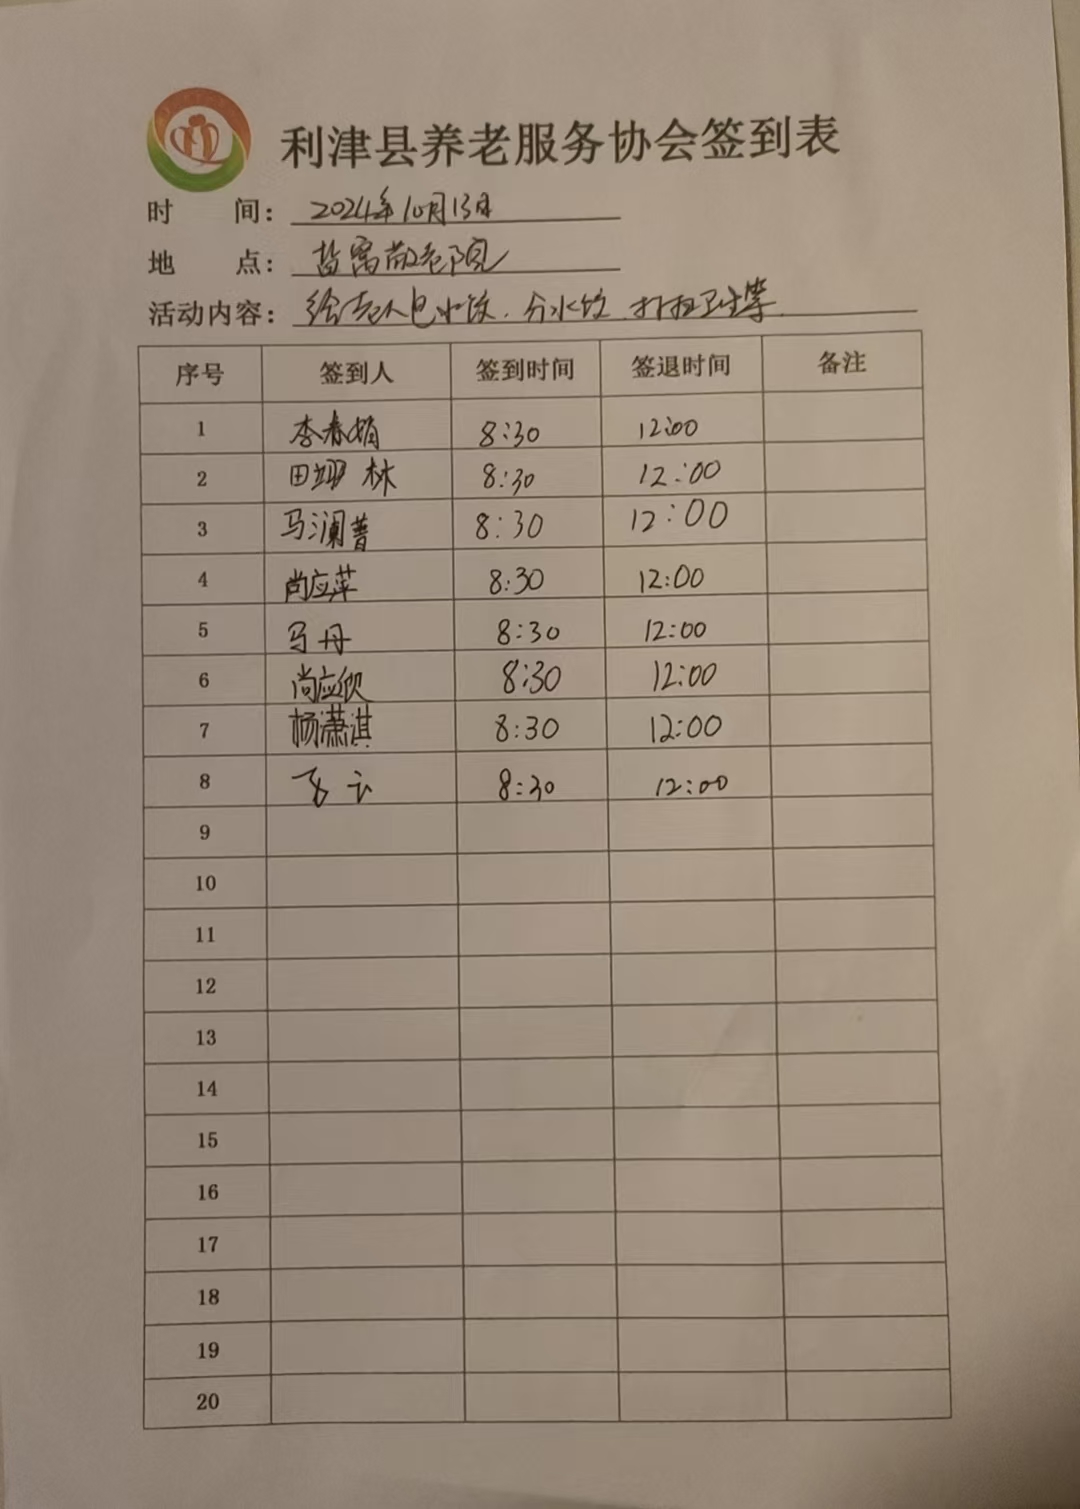 利津县养老服务协会签到表
时 间： 2024年10月13日
地 点： 盐窝敬老院
活动内容： 给老人包水饺、分水饺、打扫卫生等
序号 签到人 签到时间 签退时间 备注
1 李春娟 8:30 12:00
2 田翊林 8:30 12:00
3 马澜菁 8:30 12:00
4 尚应萍 8:30 12:00
5 马丹 8:30 12:00
6 尚应欣 8:30 12:00
7 杨潇淇 8:30 12:00
8 飞云 8:30 12:00
9
10
11
12
13
14
15
16
17
18
19
20